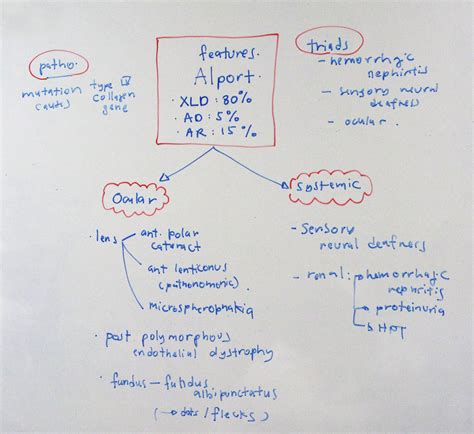 features.
Alport.
• XLD : 80%
• AD : 5%
• AR : 15%
patho.
mutation type IV
causes collagen
gene
triads
- hemorrhagic
nephritis
- sensory neural
deafness
- ocular.
Ocular
• lens
ant. polar
cataract
ant lenticonus
(pathonomonic)
microspherophakia
• post polymorphous
endothelial dystrophy
• fundus - fundus
albipunctatus
(→ dots / flecks)
systemic
- sensory
neural deafness
- renal : hemorrhagic
nephritis
proteinuria
HPT